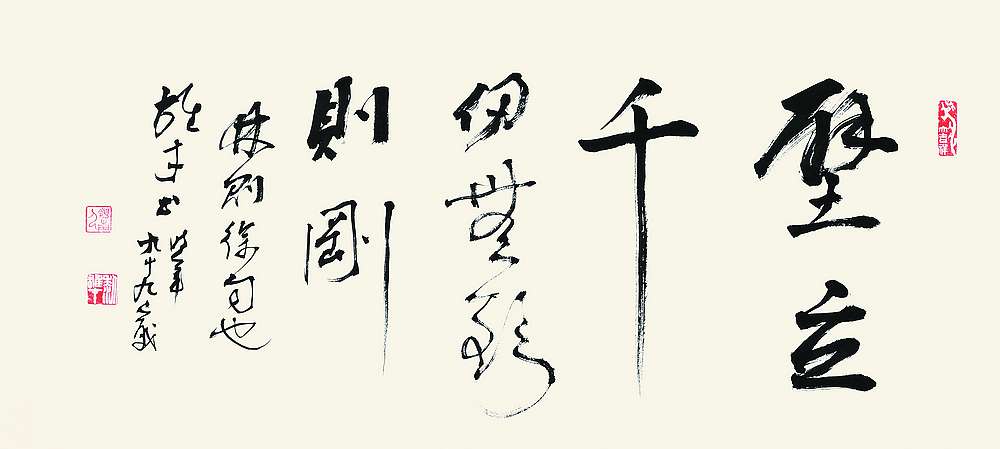 壁立
千
仞無欲
則剛
林則徐句也
雄才書
時年
九十九歲